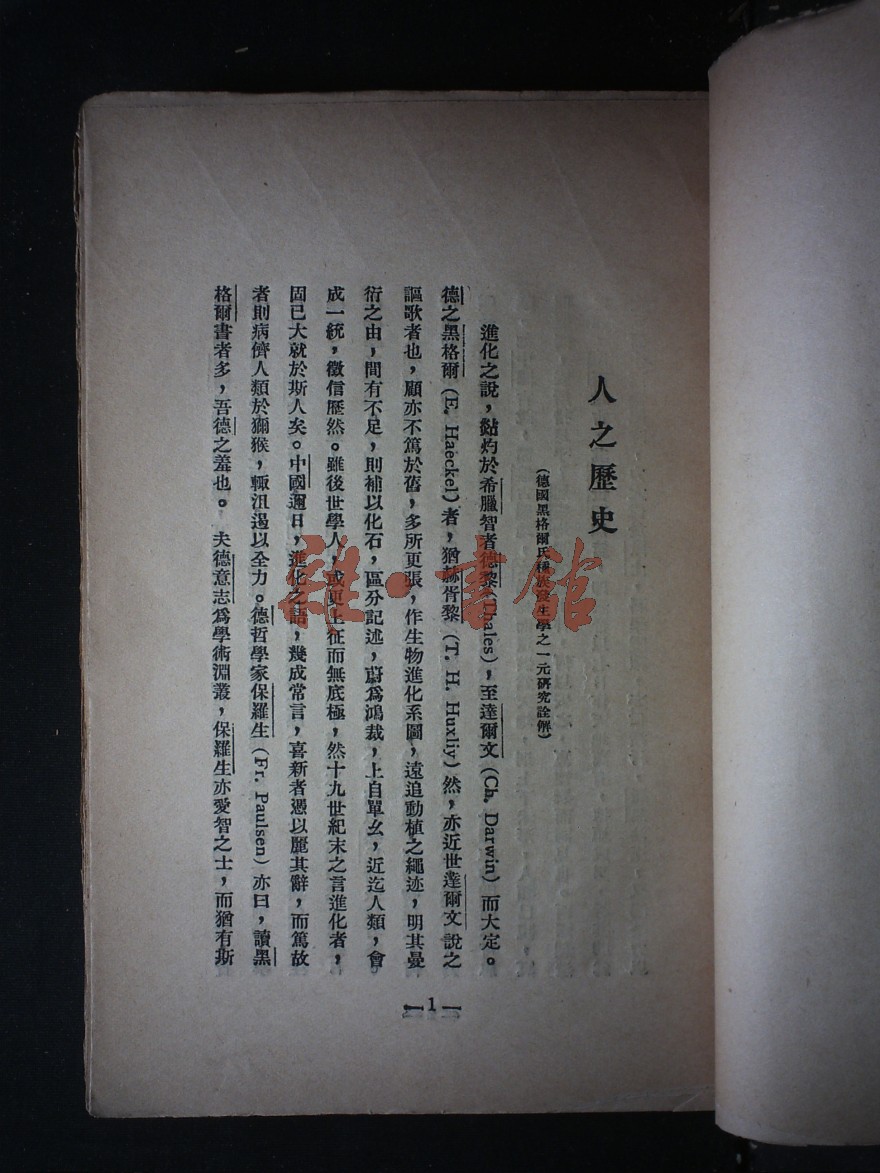 人之歷史
(德國黑格爾氏種族發生學之一元研究詮解)
進化之說，黏灼於希臘智者德黎(Thales)，至達爾文(Ch. Darwin)而大定。
德之黑格爾(E. Haeckel)者，猶赫胥黎(T. H. Huxliy)然，亦近世達爾文說之
謳歌者也，顧亦不篤於舊，多所更張，作生物進化系圖，遠追動植之繩迹，明其曼
衍之由，間有不足，則補以化石，區分記述，蔚爲鴻裁，上自單幺，近迄人類，會
成一統，徵信歷然。雖後世學人，或更上征而無底極，然十九世紀末之言進化者，
固已大就於斯人矣。中國邇日，進化之語，幾成常言，喜新者憑以麗其辭，而篤故
者則病儕人類於獼猴，輒沮遏以全力。德哲學家保羅生(Fr. Paulsen)亦曰，讀黑
格爾書者多，吾德之羞也。 夫德意志爲學術淵叢，保羅生亦愛智之士，而猶有斯
【1】
雜·書館